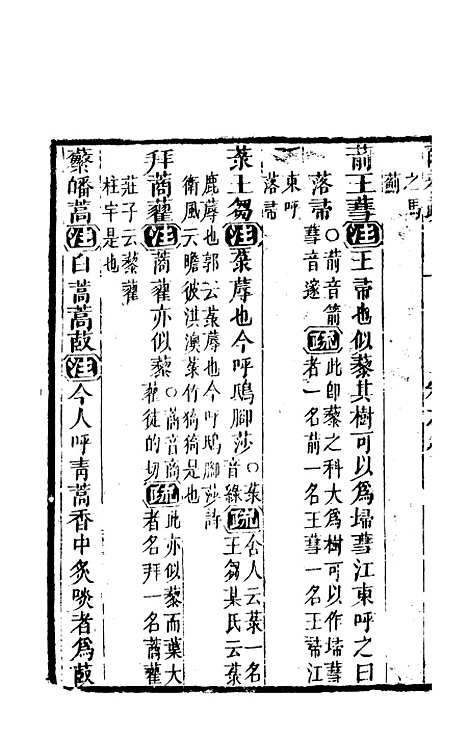 之馬
薊
葥王蔧注王帚也似藜其樹可以為埽蔧江東呼之曰
落帚○葥音箭蔧音遂疏此即藜之科大為樹可以作埽蔧者一名葥一名王蔧一名王帚江
東呼落帚
菉王芻注菉蓐也今呼鴟腳莎○菉音綠疏舍人云菉一名王芻某氏云菉
鹿蓐也郭云菉蓐也今呼鴟腳莎詩衛風云瞻彼淇澳菉竹猗猗是也
拜蔏藋注蔏藋亦似藜○蔏音商藋徒的切疏此亦似藜而葉大者名拜一名蔏藋
莊子云藜藋柱宇是也
蘩皤蒿注白蒿蒿菣注今人呼青蒿香中炙啖者為菣